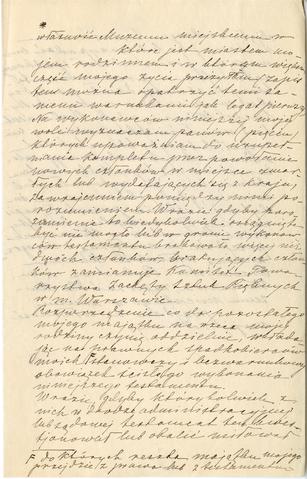 właśnie Muzeum miejskiem w
które jest miastem mo-
jem rodzinnem i w którem większą
część mojego życia przeżyłem / zapis
ten można opatrzyć temi sa-
memi warunkami jak legat pierwszy
Na wykonawców niniejszej mojej
woli wyznaczam panów / pięciu
których upoważniam do uzupeł-
niania kompletu przez powołanie
nowych członków w miejsce zmar-
łych lub wydalających się z kraju,
za wzajemnem pomiędzy nimi po-
rozumieniem. W razie gdyby poro-
zumienie to kiedykolwiek osiągnięte
być nie mogło lub w gronie wykonaw-
ców testamentu brakowało więcej niż
dwóch członków, brakujących człon-
ków zamianuje Komitet Towa-
rzystwa Zachęty Sztuk Pięknych
w m. Warszawie.
Rozporządzenie co do pozostałego
mojego majątku na rzecz mojej
rodziny czynię oddzielnie, wkłada-
jąc na prawnych spadkobierców
moich bezwarunkowy
obowiązek ścisłego wykonania
niniejszego testamentu.
W razie, gdyby którykolwiek z
nich w drodze administracyjnej
lub sądowej testament ten kwes-
tjonował lub obalić usiłował
F do których reszta majątku mojego
przejdzie / z prawa lub z testamentu